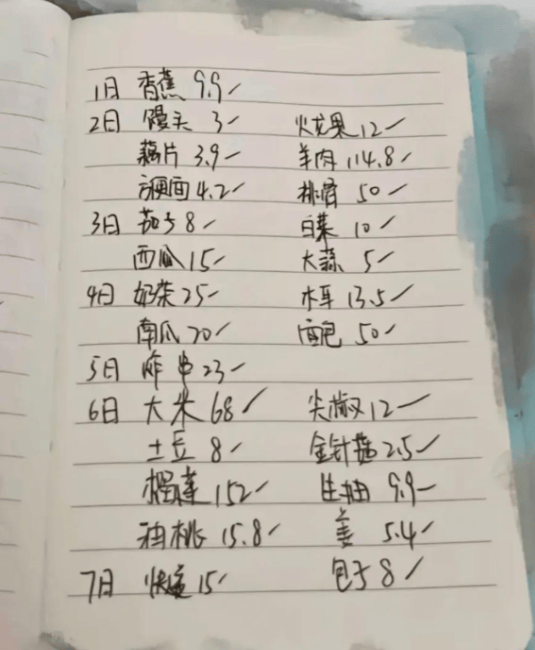 1日 香蕉 9.9✓
2日 馒头 3✓ 火龙果 12✓
藕片 3.9✓ 羊肉 114.8✓
方便面 4.2✓ 排骨 50✓
3日 茄子 8✓ 白菜 10✓
西瓜 15✓ 大蒜 5✓
4日 奶茶 25✓ 木耳 13.5✓
南瓜 20✓ 面包 50✓
5日 炸串 23✓
6日 大米 68✓ 尖椒 12✓
土豆 8✓ 金针菇 2.5✓
榴莲 152✓ 生抽 9.9✓
油桃 15.8✓ 姜 5.4✓
7日 15✓ 包子 8✓